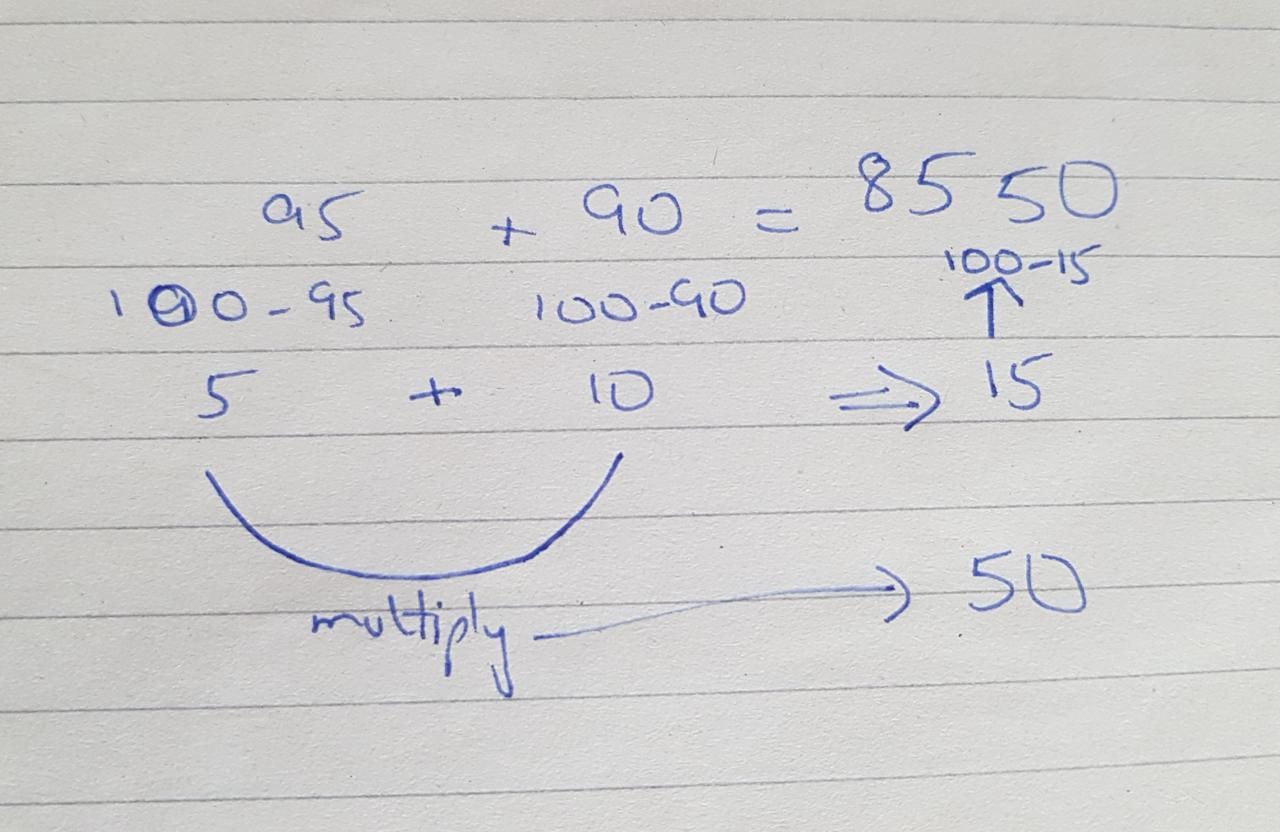 95 + 90 = 8550
100-95 100-90 100-15
↑
5 + 10 ⇒ 15
multiply → 50